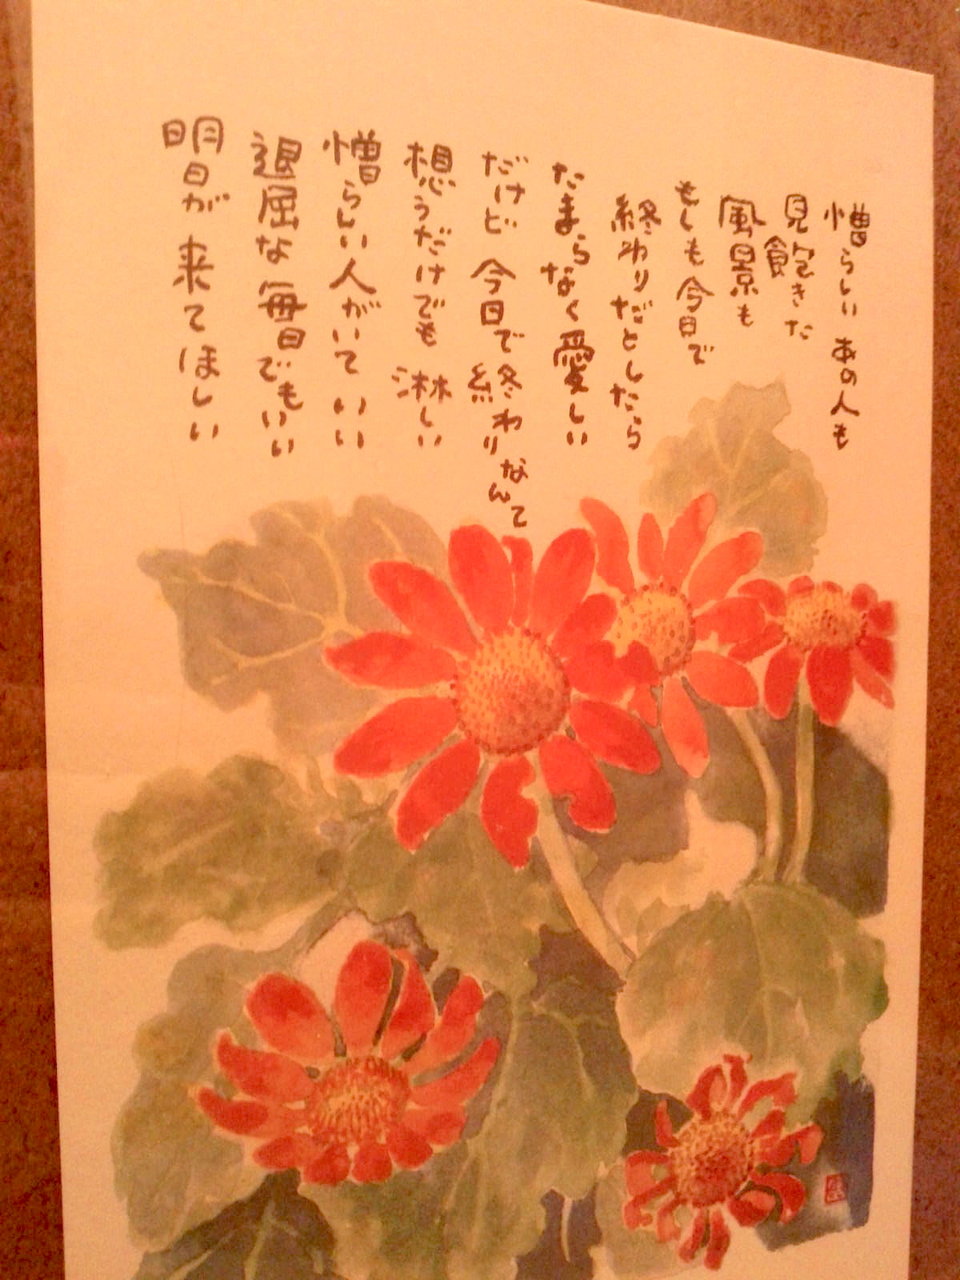 憎らしい あの人も
見飽きた
風景も
もしも 今日で
終わりだとしたら
たまらなく 愛しい
だけど 今日で 終わりなんて
想うだけでも 淋しい
憎らしい人がいて いい
退屈な 毎日でもいい
明日が 来てほしい